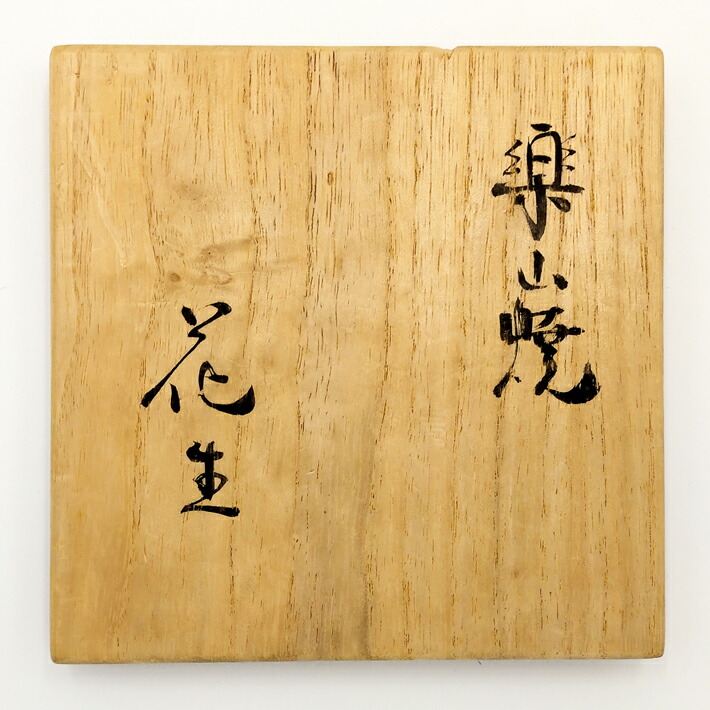 楽山焼
花生